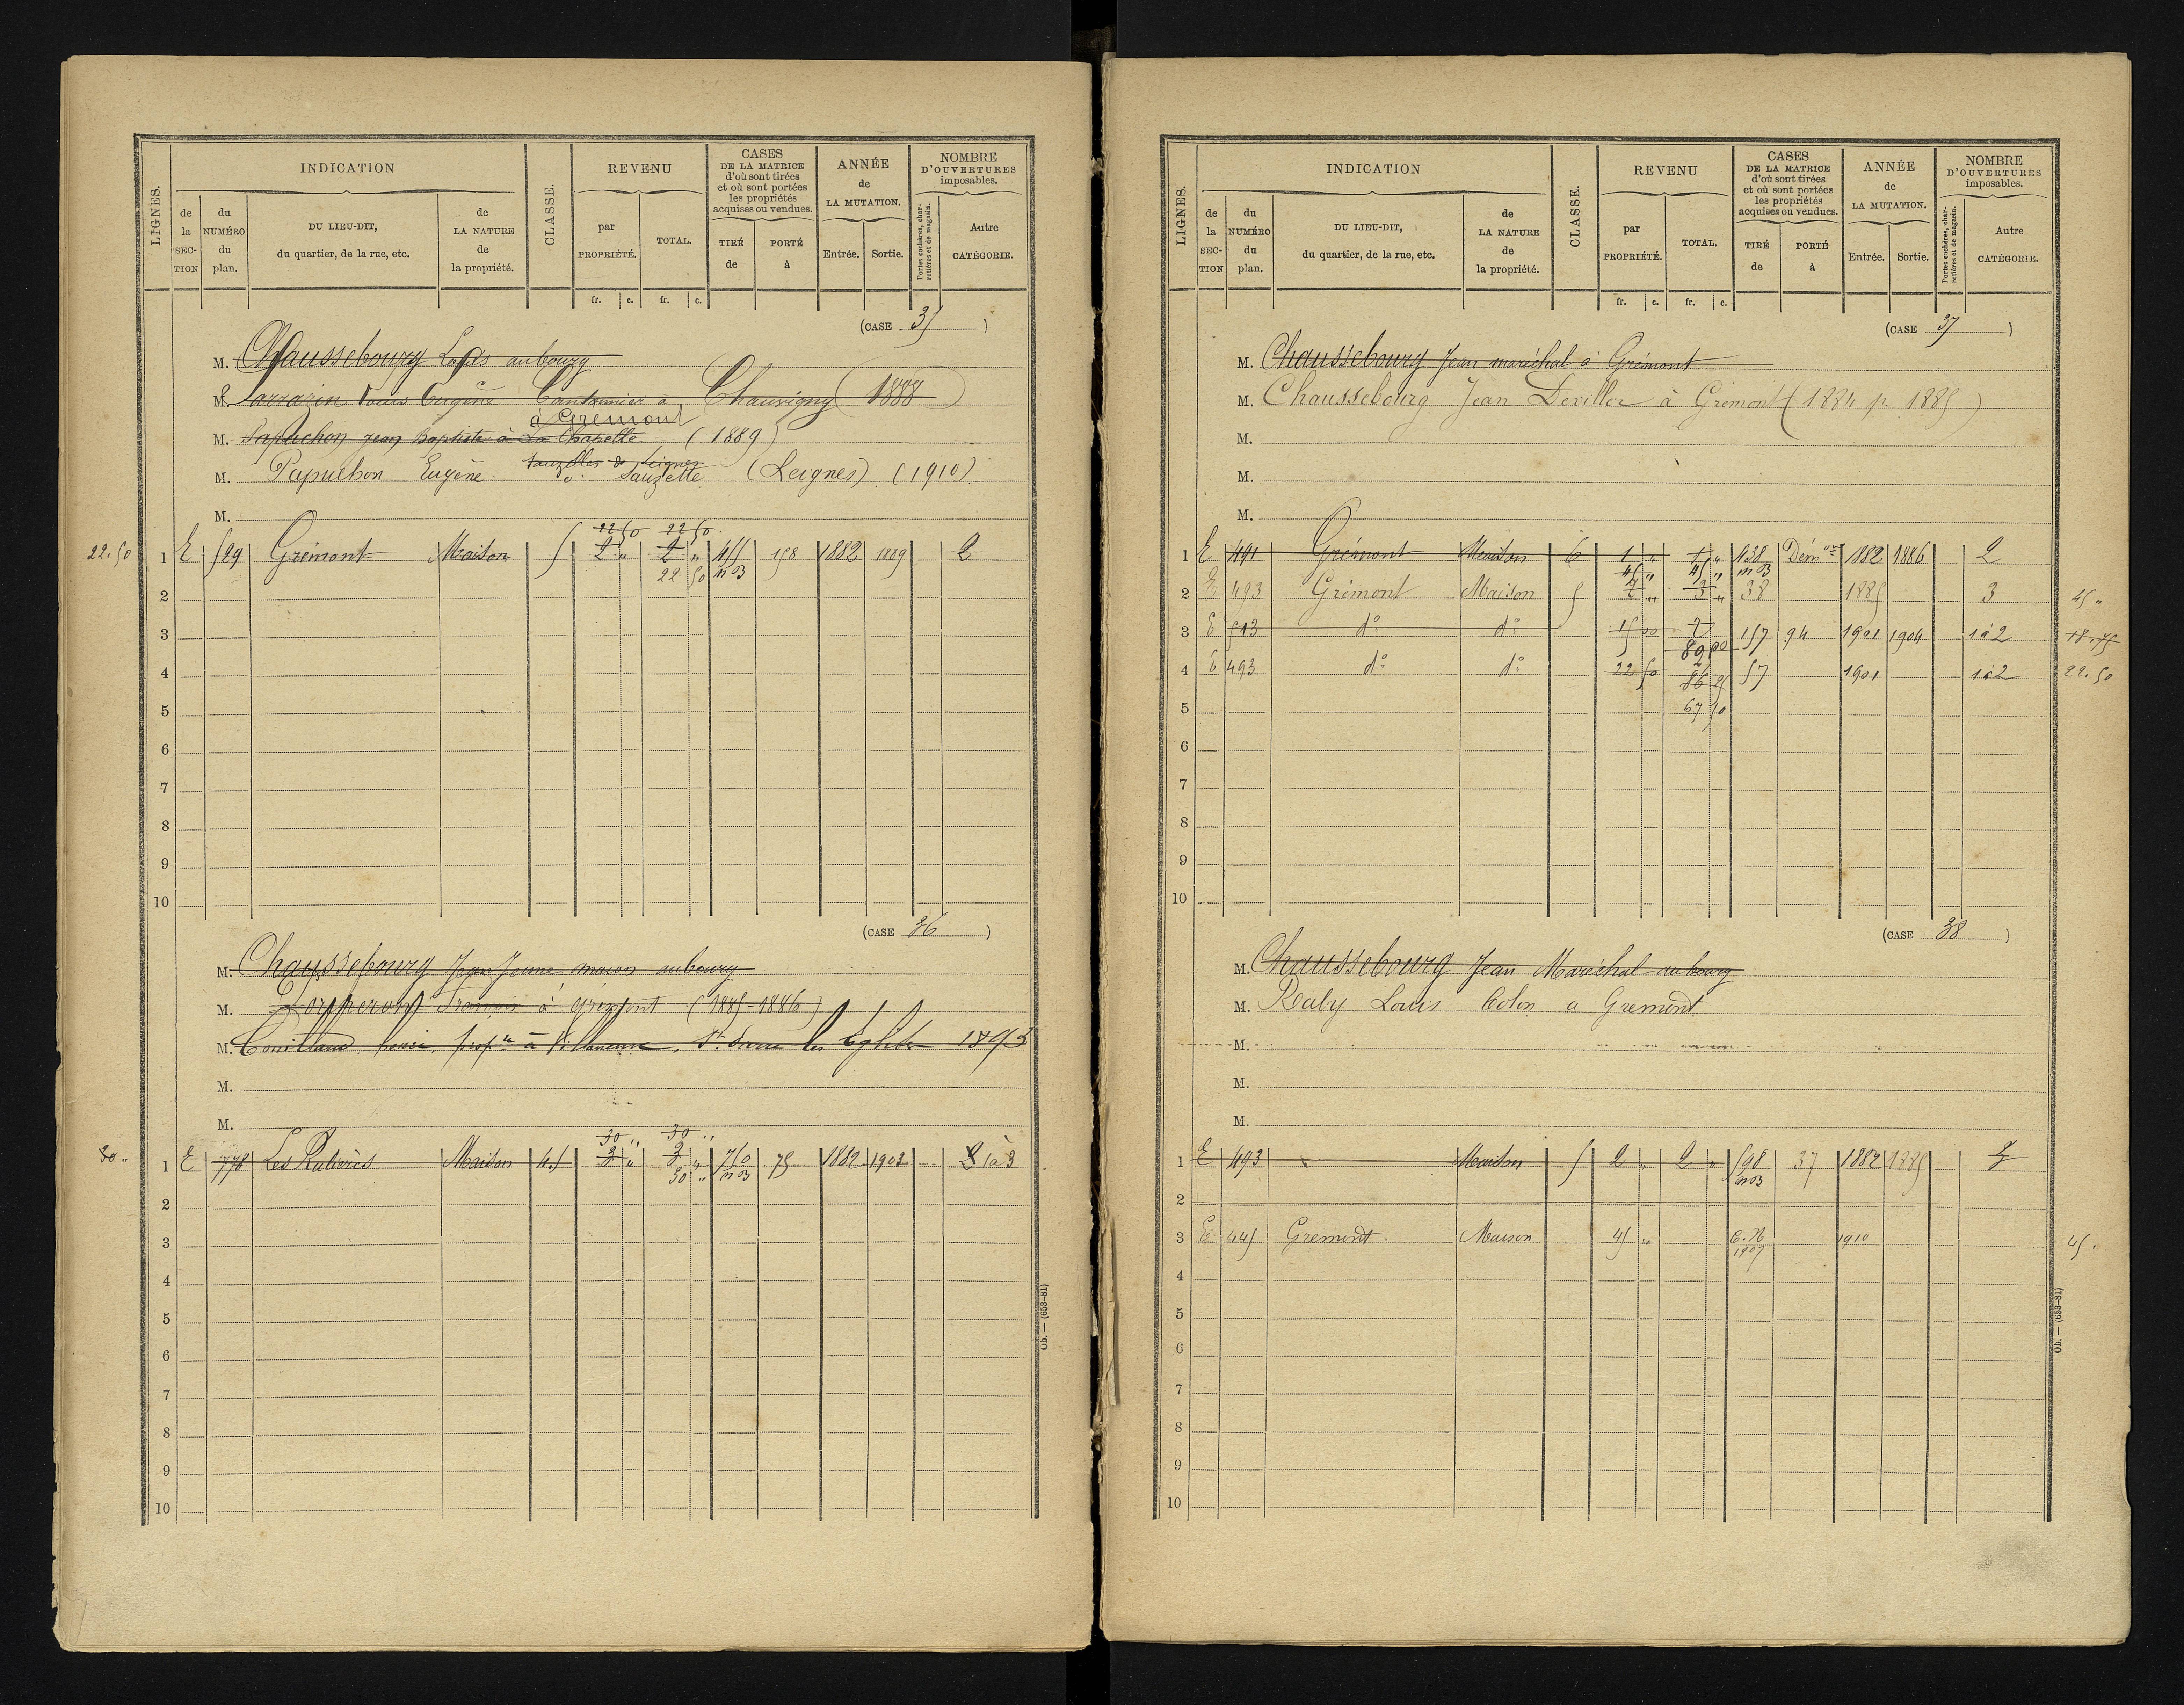 LIGNES.
INDICATION
de la SECTION
du NUMÉRO du plan.
DU LIEU-DIT, du quartier, de la rue, etc.
de LA NATURE de la propriété.
CLASSE.
REVENU
par PROPRIÉTÉ.
TOTAL.
fr. c. fr. c.
CASES DE LA MATRICE d'où sont tirées et où sont portées les propriétés acquises ou vendues.
TIRÉ de
PORTÉ à
ANNÉE de LA MUTATION.
Entrée. Sortie.
NOMBRE D'OUVERTURES imposables.
Portes cochères, charretières et de magasin.
Autre CATÉGORIE.
(CASE 35)
M. Chaussebourg Louis au bourg
M. Sarrazin Louis Eugène Cantonnier à Chauvigny (1888)
à Gremont
M. Papuchon Jean Baptiste à La Chapelle (1889)
M. Papuchon Eugène Sauzelle (Leignes) (1910)
M.
22 50 22 50
22.50 1 E 529 Grémont Maison 5 2 " 2 " 455 158 1882 1889 2
22 50 m 03
2
3
4
5
6
7
8
9
10
(CASE 36)
M. Chaussebourg Jean Jeune maçon au bourg
M. François à Grémont (1885-1886)
M. propre à Villeneuve, 1893
M.
M.
30 " 30 "
30 " 1 E 778 Maison 4.5 3 " 3 " 750 75 1882 1903 2 1à3
30 " m 03
2
3
4
5
6
7
8
9
10
Ob. — (653-81)
LIGNES.
INDICATION
de la SECTION
du NUMÉRO du plan.
DU LIEU-DIT, du quartier, de la rue, etc.
de LA NATURE de la propriété.
CLASSE.
REVENU
par PROPRIÉTÉ.
TOTAL.
fr. c. fr. c.
CASES DE LA MATRICE d'où sont tirées et où sont portées les propriétés acquises ou vendues.
TIRÉ de
PORTÉ à
ANNÉE de LA MUTATION.
Entrée. Sortie.
NOMBRE D'OUVERTURES imposables.
Portes cochères, charretières et de magasin.
Autre CATÉGORIE.
(CASE 37)
M. Chaussebourg Jean maréchal à Grémont
M. Chaussebourg Jean Deviller à Grémont (1884 p. 1885)
M.
M.
M.
1 E 491 Grémont Maison 6 1 " 1 " 438 Démon 1882 1886 2
45 " 45 " m 03
2 E 493 Grémont Maison 5 2 " 3 " 38 1885 3 45 "
3 E 513 do do 15 00 157 94 1901 1904 1à2 18.75
4 E 493 do do 22 50 86 25 57 1901 1à2 22.50
5 67 50
6
7
8
9
10
(CASE 38)
M. Chaussebourg Jean Maréchal au bourg
M. Raby Louis Colon a Gremont
M.
M.
M.
1 E 493 Maison 5 2 " 2 " 598 37 1882 1885
m 03
2
3 E 445 Gremont Maison 45 " 1910 45 "
1909
4
5
6
7
8
9
10
Ob. — (653-81)